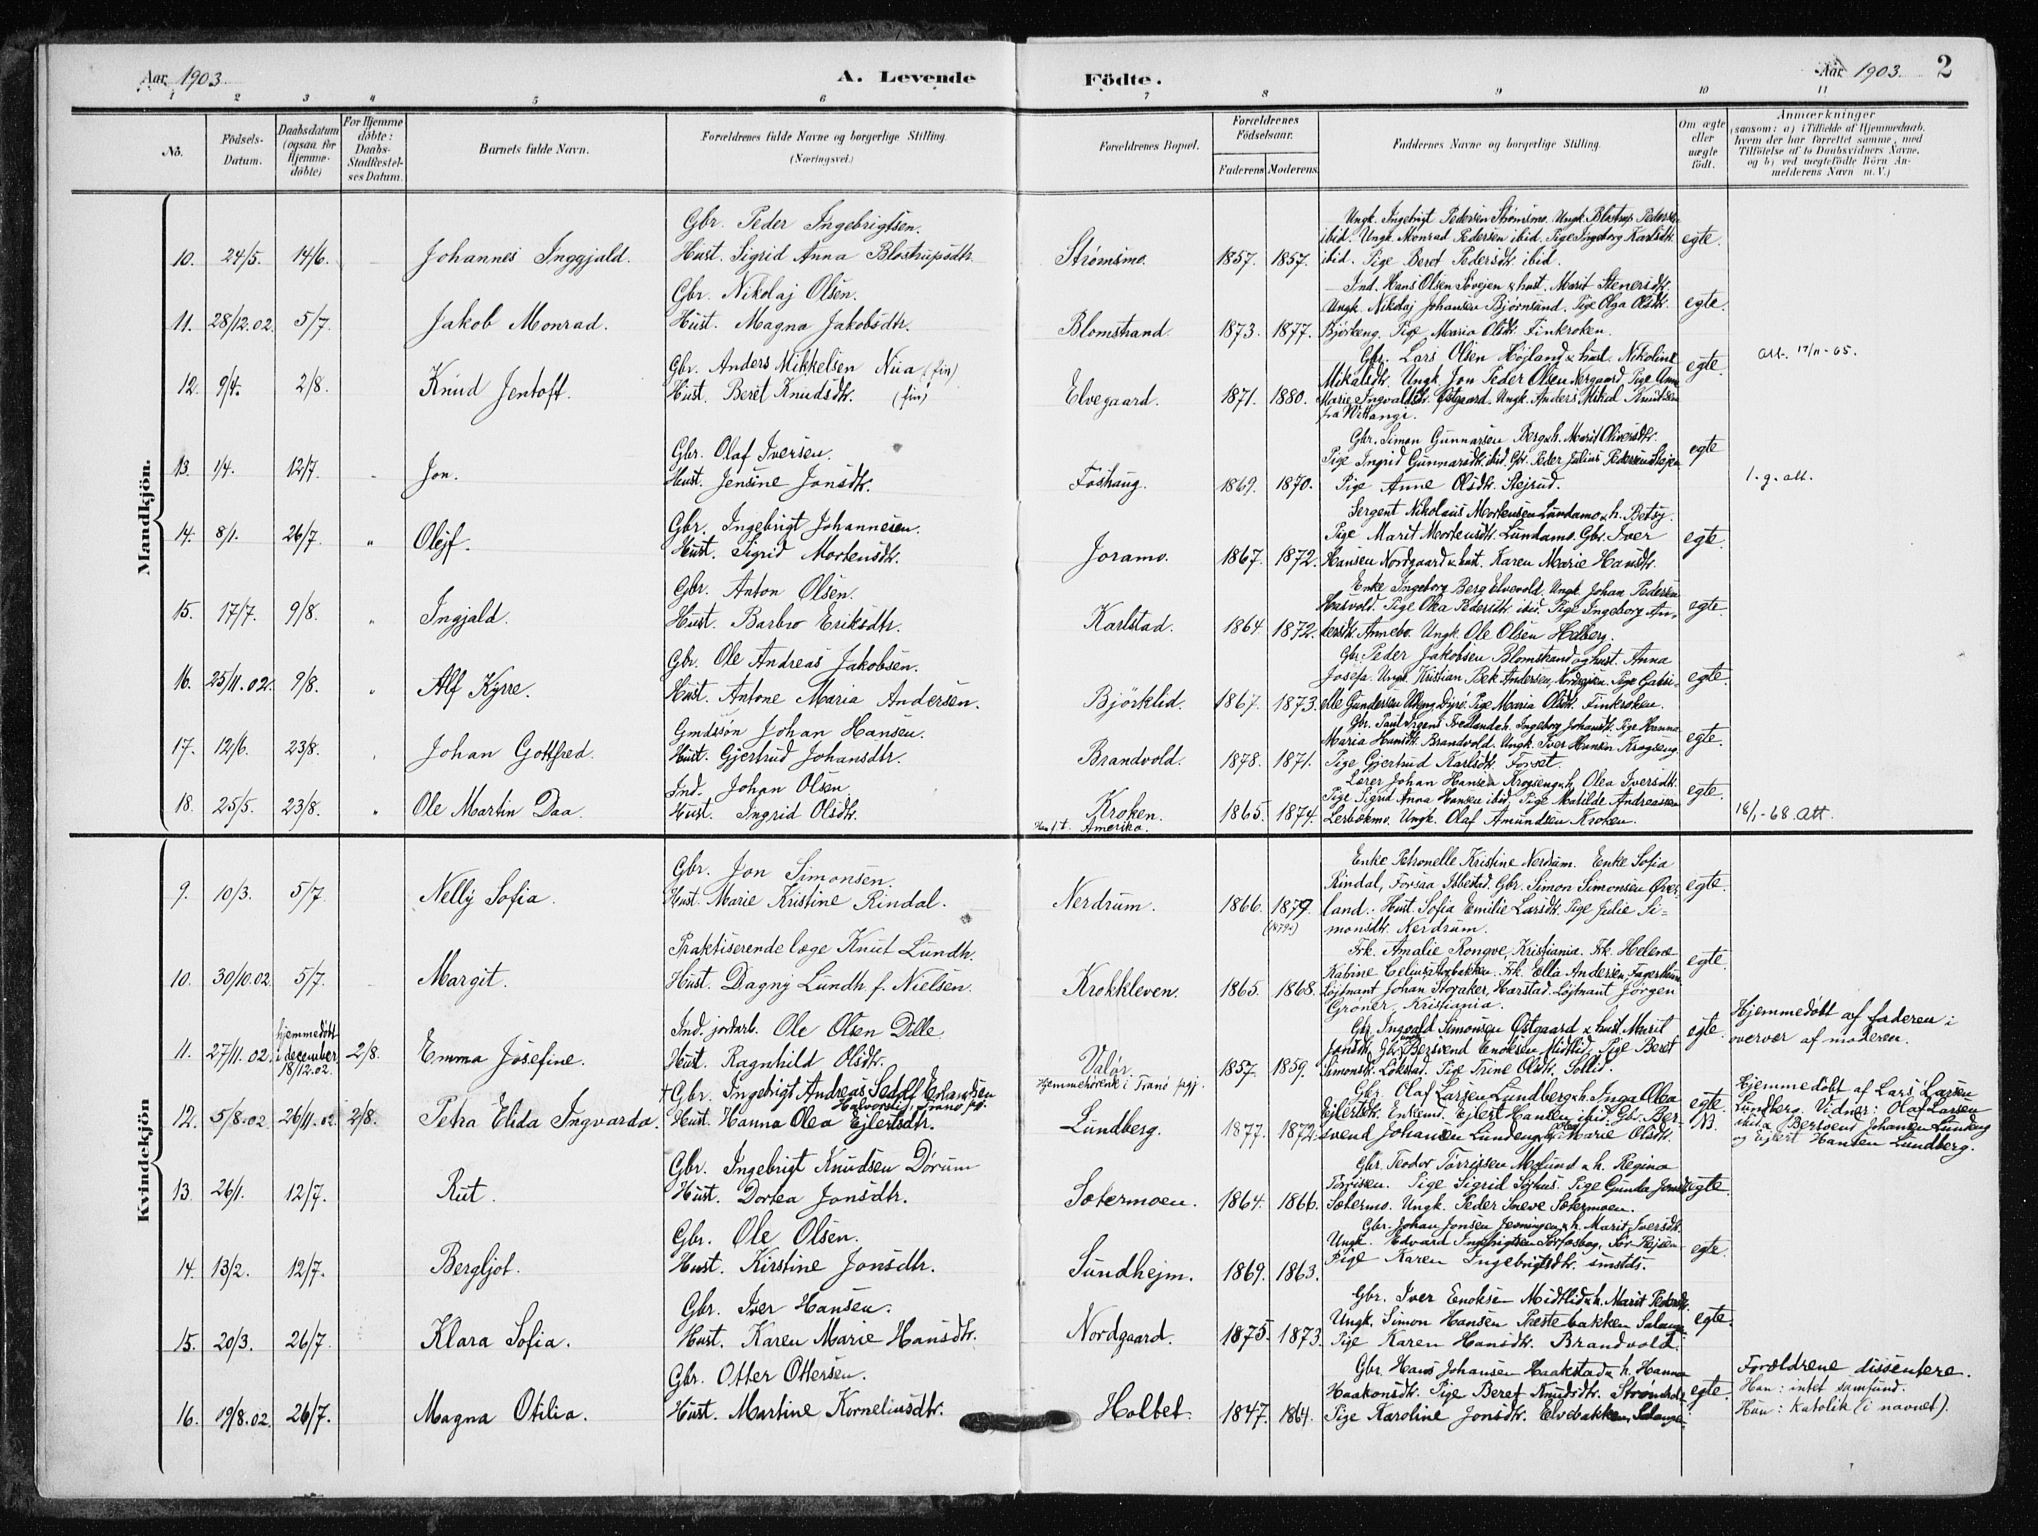 Aar 1903.
A. Levende
Födte.
Aar 1903.
2
1 2 3 4 5 6 7 8 9 10 11
No.
Födsels-Datum.
Daabsdatum (ogsaa for Hjemmedöbte)
For Hjemmedöbte: Daabs-Stadfæstelses Datum.
Barnets fulde Navn.
Forældrenes fulde Navne og borgerlige Stilling. (Næringsvei.)
Forældrenes Bopæl.
Forældrenes Födselsaar.
Faderens Moderens
Faddernes Navne og borgerlige Stilling.
Om ægte eller uægte födt.
Anmærkninger
(saasom: a) i Tilfælde af Hjemmedaab, hvem der har forrettet samme, med Tilföielse af to Daabsvidners Navne, og b) ved uægtefödte Börn Anmelderens Navn m. V.)
Mandkjön.
Gbr. Peder Ingebrigtsen.
Ungk. Ingebrigt Pedersen Strømsmo. Ungk. Blostrup Pedersen
ibid. Ungk. Monrad Pedersen ibid. Pige Ingeborg Karlsdtr.
10. 24/5. 14/6. Johannes Inggjald. Hust. Sigrid Anna Blostrupsdtr. Strømsmo. 1857. 1857. ibid. Pige Beret Pedersdtr. ibid. egte.
Gbr. Nikolaj Olsen.
Ind. Hans Olsen Søvejen & hust. Marit Stenersdtr.
Ungk. Nikolaj Johansen Bjørnsund. Pige Olga Olsdtr.
11. 28/12.02. 5/7. Jakob Monrad. Hust. Magna Jakobsdtr. Blomstrand. 1873. 1877. Bjørkeng. Pige Maria Olsdtr. Finkroken. egte.
Gbr. Anders Mikkelsen Niia (fin)
Gbr. Lars Olsen Højland & hust. Nikoline
Mikalsdtr. Ungk. Jon Peder Olsen Nergaard. Pige Anne
12. 9/4. 2/8. Knud Jentoft. Hust. Beret Knudsdtr. (fin) Elvegaard. 1871. 1880. Marie Ingvaldsdtr. Østgaard. Ungk. Anders Mikal Knudsen egte. att. 17/11-65.
fra Vittangi.
Gbr. Olaf Iversen.
Gbr. Simon Gunnarsen Berg & h. Marit Oliversdtr.
Pige Ingrid Gunnarsdtr. ibid. Gbr. Peder Julius Pedersen
13. 1/4. 12/7. Jon. Hust. Jensine Jonsdtr. Fosshaug. 1869. 1870. Pige Anne Olsdtr. Stejrud. egte 1. g. att.
Gbr. Ingebrigt Johannesen.
Sergent Nikolaus Mortensen Lundamo & h. Betsy.
Pige Marit Mortensdtr. Lundamo. Gbr. Iver
14. 8/1. 26/7. " Olejf. Hust. Sigrid Mortensdtr. Joramo. 1867. 1872. Hansen Nordgaard & hust. Karen Marie Hansdtr. egte.
Gbr. Anton Olsen.
Enke Ingeborg Berg Elvevold. Ungk. Johan Pedersen
Husvold. Pige Olea Pedersdtr. ibid. Pige Ingeborg An-
15. 17/7. 9/8. " Ingjald. Hust. Barbro Eriksdtr. Karlstad. 1864. 1872. dersdtr. Annebo. Ungk. Ole Olsen Holberg. egte.
Gbr. Ole Andreas Jakobsen.
Gbr. Peder Jakobsen Blomstrand og hust. Anna
Josefa. Ungk. Kristian Bek Andersen, Pige Gabri-
16. 25/11.02. 9/8. " Alf Kyrre. Hust. Antone Maria Andersen. Bjørklid. 1867. 1873. elle Gundersen Dyrø. Pige Maria Olsdtr. Finkroken. egte.
Gmdssøn Johan Hansen.
Gbr. Paul Irgens Fredland & h. Ingeborg Johansdtr. Pige Hanna
Maria Hansdtr. Brandvold. Ungk. Iver Hansen Krogseng.
17. 12/6. 23/8. Johan Gottfred. Hust. Gjertrud Johansdtr. Brandvold. 1878. 1871. Pige Gjertrud Karlsdtr. Forset. egte.
Ind. Johan Olsen.
Lærer Johan Hansen Krogseng & h. Olea Iversdtr.
Pige Sigrid Anna Hansen ibid. Pige Matilde Andreassen
18. 25/5. 23/8. " Ole Martin Daa. Hust. Ingrid Olsdtr. Kroken. 1865. 1874. Lerbækmo. Ungk. Olaf Amundsen Kroken. egte. 18/1-68 att.
Han f.t. Amerika.
Kvindekjön
Gbr. Jon Simonsen.
Enke Petronelle Kristine Nerdrum. Enke Sofia
Rindal, Forsaa Ibbestad. Gbr. Simon Simonsen Øver-
9. 10/3. 5/7. Nelly Sofia. Hust. Marie Kristine Rindal. Nerdrum. 1866. 1879. land. Hust. Sofia Emilie Larsdtr. Pige Julie Si- egte.
(1879.) monsdtr. Nerdrum.
Praktiserende læge Knut Lundh.
Frk. Amalie Rongve, Kristiania. Frk. Helene
Kabine Celius Storbakken. Frk. Ella Andersen Fagerheim
10. 30/10.02. 5/7. Margit. Hust. Dagny Lundh f. Nielsen. Krokkleven. 1865. 1868. Løjtnant Johan Storaker, Harstad. Løjtnant Jørgen egte.
Grøner Kristiania.
hjemmedøbt i december 18/12.02.
Ind. jordarb. Ole Olsen Dille
Gbr. Ingvald Simonsen Østgaard & hust. Marit
Jonsdtr. Gbr. Bersvend Enoksen Midtlid. Pige Beret
11. 27/11.02. 2/8. Emma Josefine. Hust. Ragnhild Olsdtr. Valør. 1857. 1859. Simonsdtr. Løkstad. Pige Trine Olsdtr. Sollid. egte. Hjemmedøbt af faderen i
overvær af moderen.
Hjemmehørende i Tranø prgj.
+ Gbr. Ingebrigt Andreas Erlandsen
Halvorslid, Tranø pg.
Gbr. Olaf Larsen Lundberg & h. Inga Olea
Ejlertsdtr. Enkemd. Ejlert Hansen ibid. Gbr. Ber-
12. 5/8.02. 26/11.02. 2/8. Petra Elida Ingvarda. Hust. Hanna Olea Ejlertsdtr. Lundberg. 1877. 1872. svend Johansen Lundeng & h. Marie Olsdtr. egte. NB.
Hjemmedøbt af Lars Larsen
Lundberg. Vidner: Olaf Larsen
ibid & Bersvend Johansen Lundeng
og Ejlert Hansen Lundberg.
Gbr. Ingebrigt Knudsen Dørum
Gbr. Teodor Tørrissen Molund & h. Regina
Tørrisen. Pige Sigrid Pige Gunda
13. 26/1. 12/7. Rut. Hust. Dortea Jonsdtr. Sætermoen. 1864. 1866. Sætermo. Ungk. Peder Sneve Sætermoen. egte.
Gbr. Ole Olsen.
Gbr. Johan Jonsen & h. Marit Iversdtr.
Ungk. Edvard Ingebrigtsen Sørfosbog, Sør-Rejsen
14. 13/2. 12/7. Bergljot. Hust. Kirstine Jonsdtr. Sundhejm. 1869. 1863. Pige Karen Ingebrigtsdtr. smstds. egte.
Gbr. Iver Hansen.
Gbr. Iver Enoksen Midtlid & h. Marit Pedersdtr.
Ungk. Simon Hansen Prestebakken Salangen
15. 20/3. 26/7. Klara Sofia. Hust. Karen Marie Hansdtr. Nordgaard. 1875. 1873. Pige Karen Hansdtr. Brandvold. egte.
Gbr. Otter Ottersen.
Gbr. Hans Johansen Haakstad & h. Hanna
Haakonsdtr. Pige Beret Knudsdtr. Strømhole
16. 19/8.02. 26/7. Magna Otilia. Hust. Martine Korneliusdtr. Holbet. 1847. 1864. Pige Karoline Jonsdtr. Elvebakken, Salangen egte.
Forældrene dissentere.
Han: intet samfund.
Hun: katolik (i navnet).